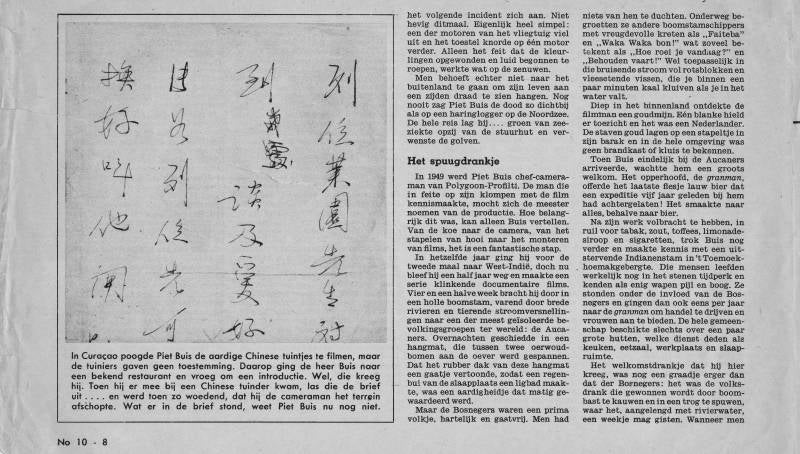 列位菜園先生
到
談及 好
列位先可
换好叫他
In Curaçao poogde Piet Buis de aardige Chinese tuintjes te filmen, maar
de tuiniers gaven geen toestemming. Daarop ging de heer Buis naar
een bekend restaurant en vroeg om een introductie. Wel, die kreeg
hij. Toen hij er mee bij een Chinese tuinder kwam, las die de brief
uit . . . . en werd toen zo woedend, dat hij de cameraman het terrein
afschopte. Wat er in de brief stond, weet Piet Buis nu nog niet.
No 10 - 8
het volgende incident zich aan. Niet
hevig ditmaal. Eigenlijk heel simpel:
een der motoren van het vliegtuig viel
uit en het toestel knorde op één motor
verder. Alleen het feit dat de kleur-
lingen opgewonden en luid begonnen te
roepen, werkte wat op de zenuwen.
Men behoeft echter niet naar het
buitenland te gaan om zijn leven aan
een zijden draad te zien hangen. Nog
nooit zag Piet Buis de dood zo dichtbij
als op een haringlogger op de Noordzee.
De hele reis lag hij.... groen van zee-
ziekte opzij van de stuurhut en ver-
wenste de golven.
Het spuugdrankje
In 1949 werd Piet Buis chef-camera-
man van Polygoon-Profilti. De man die
in feite op zijn klompen met de film
kennismaakte, mocht zich de meester
noemen van de productie. Hoe belang-
rijk dit was, kan alleen Buis vertellen.
Van de koe naar de camera, van het
stapelen van hooi naar het monteren
van films, het is een fantastische stap.
In hetzelfde jaar ging hij voor de
tweede maal naar West-Indië, doch nu
bleef hij een half jaar weg en maakte een
serie klinkende documentaire films.
Vier en een halve week bracht hij door in
een holle boomstam, varend door brede
rivieren en tierende stroomversnellin-
gen naar een der meest geïsoleerde be-
volkingsgroepen ter wereld: de Auca-
ners. Overnachten geschiedde in een
hangmat, die tussen twee oerwoud-
bomen aan de oever werd gespannen.
Dat het rubber dak van deze hangmat
een gaatje vertoonde, zodat een regen-
bui van de slaapplaats een ligbad maak-
te, was een aardigheidje dat matig ge-
waardeerd werd.
Maar de Bosnegers waren een prima
volkje, hartelijk en gastvrij. Men had
niets van hen te duchten. Onderweg be-
groetten ze andere boomstamschippers
met vreugdevolle kreten als „Faiteba"
en „Waka Waka bon!" wat zoveel be-
tekent als „Hoe roei je vandaag?" en
„Behouden vaart!" Wel toepasselijk in
die bruisende stroom vol rotsblokken en
vleesetende vissen, die je binnen een
paar minuten kaal kluiven als je in het
water valt.
Diep in het binnenland ontdekte de
filmman een goudmijn. Eén blanke hield
er toezicht en het was een Nederlander.
De staven goud lagen op een stapeltje in
zijn barak en in de hele omgeving was
geen brandkast of kluis te bekennen.
Toen Buis eindelijk bij de Aucaners
arriveerde, wachtte hem een groots
welkom. Het opperhoofd, de granman,
offerde het laatste flesje lauw bier dat
een expeditie vijf jaar geleden bij hem
had achtergelaten! Het smaakte naar
alles, behalve naar bier.
Na zijn werk volbracht te hebben, in
ruil voor tabak, zout, toffees, limonade-
siroop en sigaretten, trok Buis nog
verder en maakte kennis met een uit-
stervende Indianenstam in 't Toemoek-
hoemakgebergte. Die mensen leefden
werkelijk nog in het stenen tijdperk en
kenden als enig wapen pijl en boog. Ze
stonden onder de invloed van de Bos-
negers en gingen dan ook eens per jaar
naar de granman om handel te drijven en
vrouwen aan te bieden. De hele gemeen-
schap beschikte slechts over een paar
grote hutten, welke dienst deden als
keuken, eetzaal, werkplaats en slaap-
ruimte.
Het welkomstdrankje dat hij hier
kreeg, was nog een graadje erger dan
dat der Bosnegers: het was de volks-
drank die gewonnen wordt door boom-
bast te kauwen en in een trog te spuwen,
waar het, aangelengd met rivierwater,
een weekje mag gisten. Wanneer men